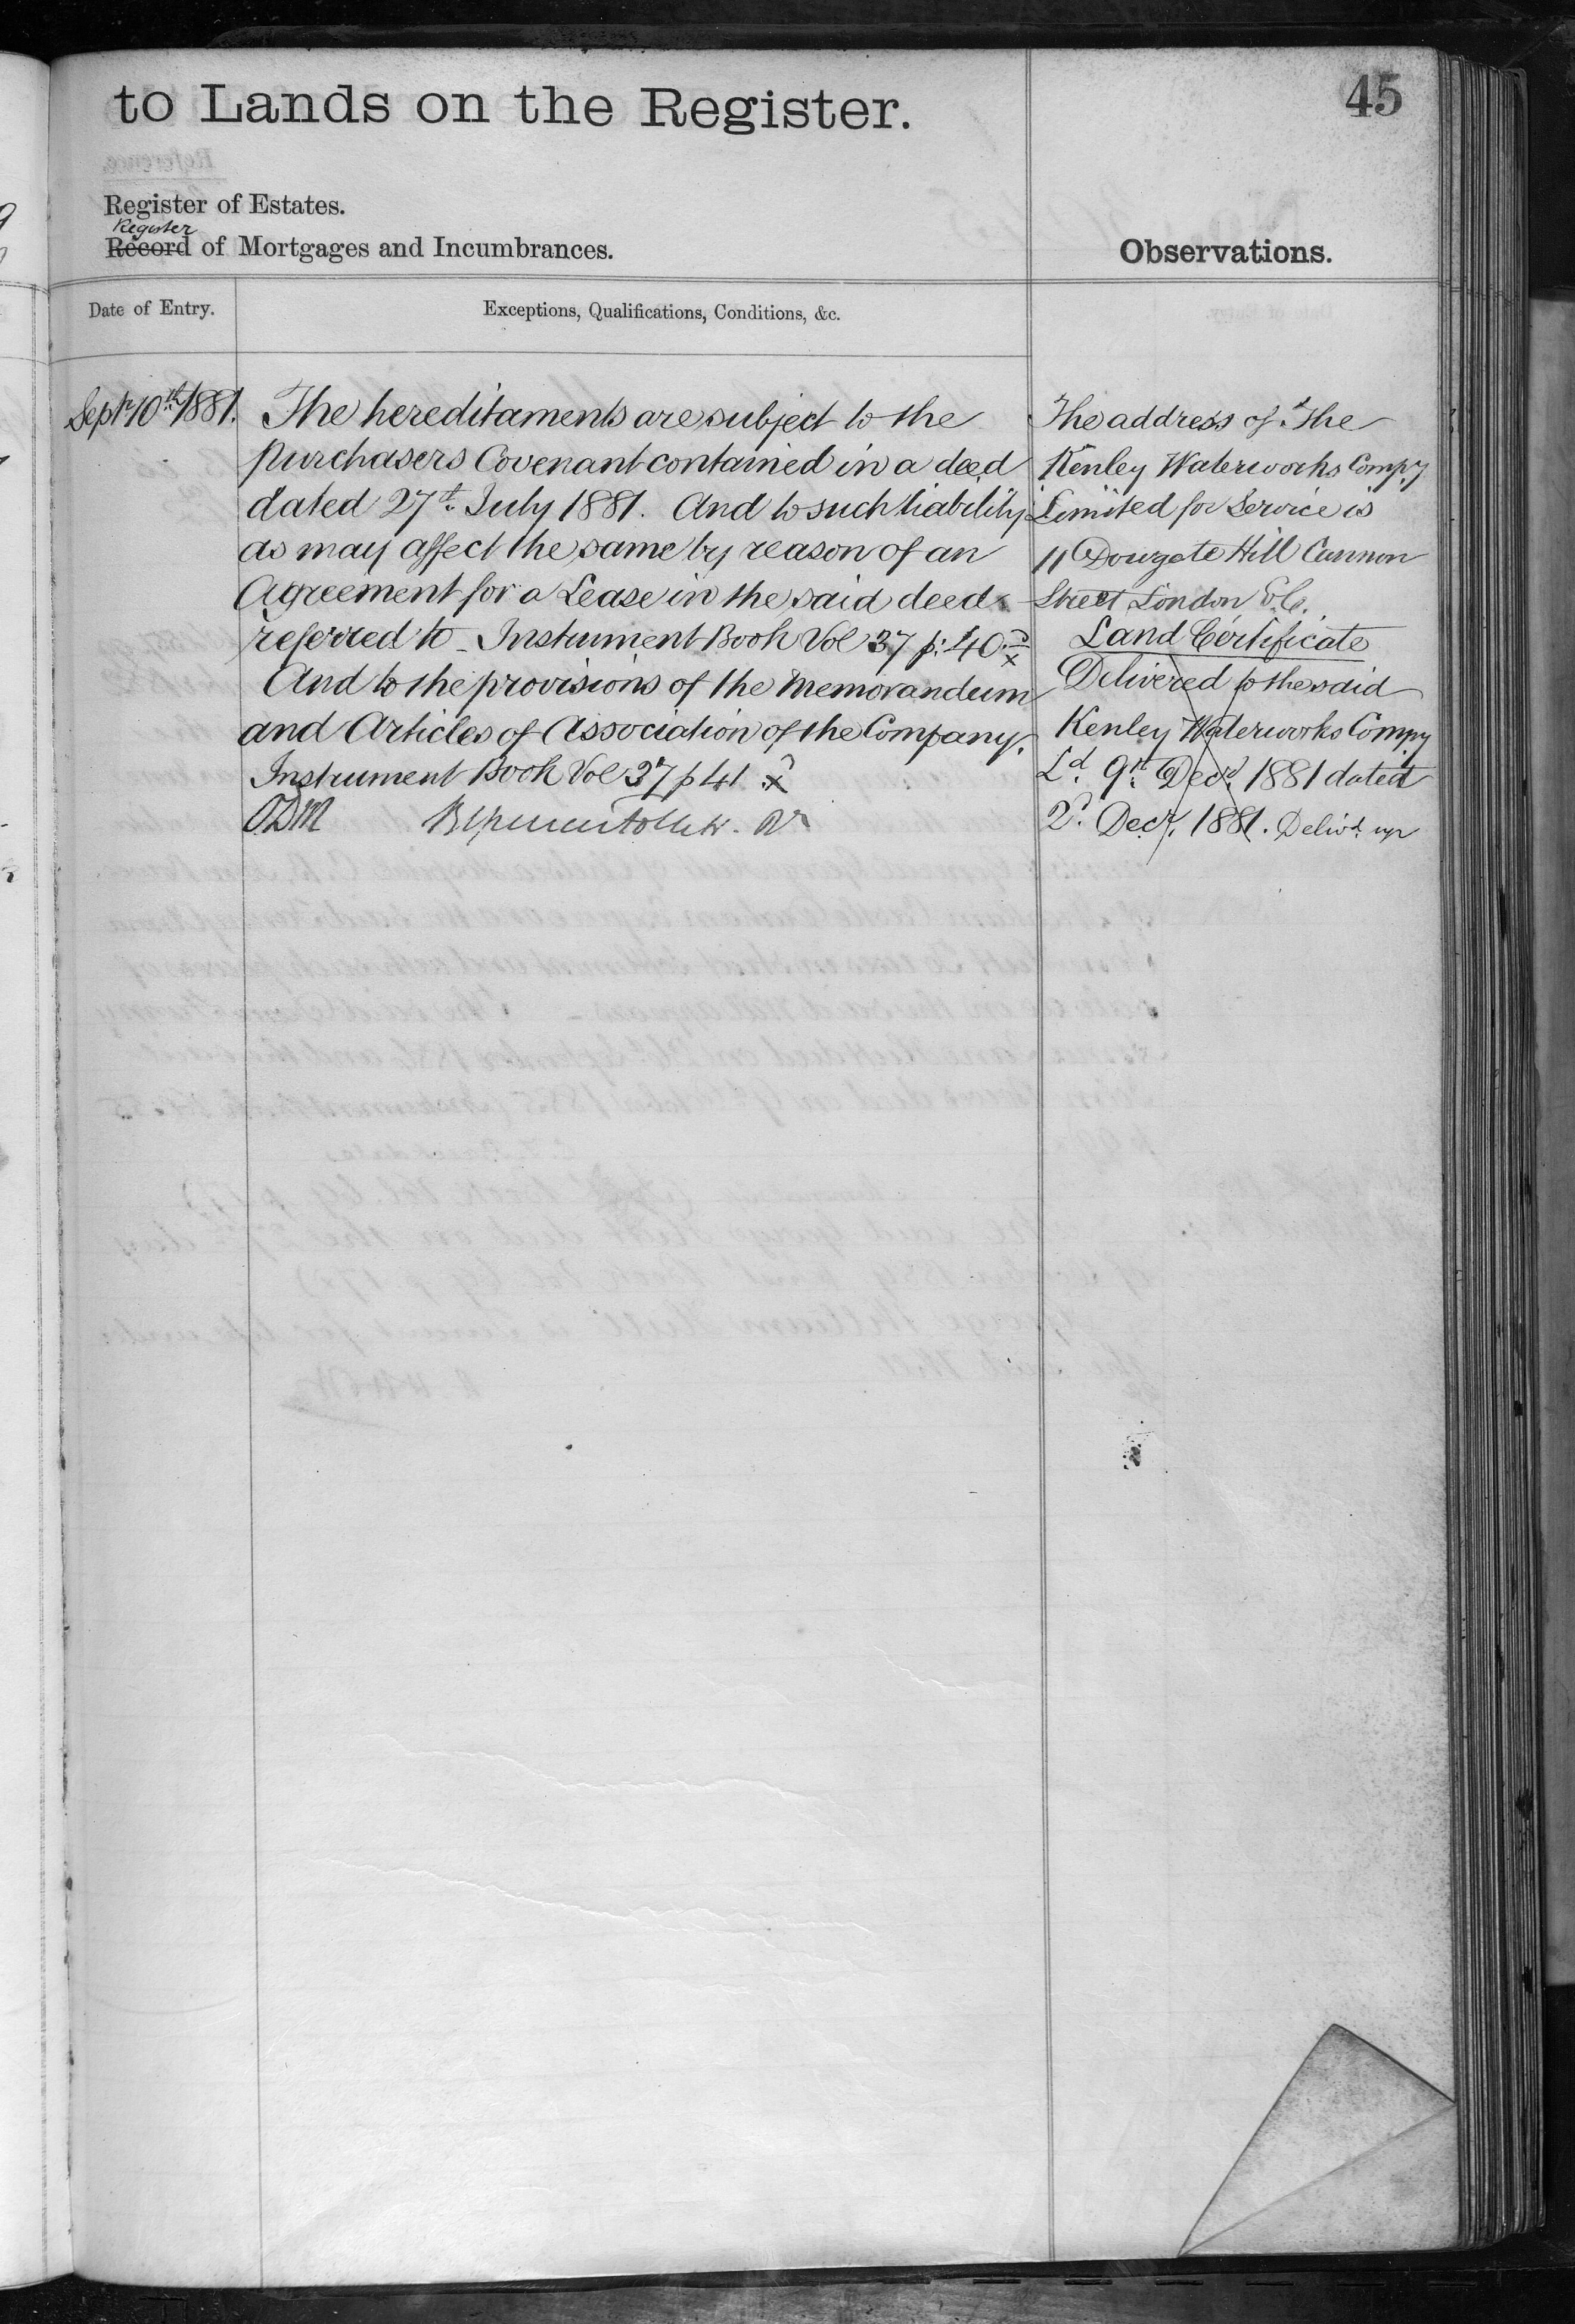 to Lands on the Register.
45
Register of Estates.
Register
Record of Mortgages and Incumbrances.
Observations.
Date of Entry.
Exceptions, Qualifications, Conditions, &c.
Septr. 10th. 1881.
The hereditaments are subject to the
purchasers Covenant contained in a deed
dated 27th. July 1881. And to such liability
as may affect the same by reason of an
Agreement for a Lease in the said deed
referred to - Instrument Book Vol 37 p. 40. x
And to the provisions of the Memorandum
and Articles of Association of the Company.
Instrument Book Vol 37 p 41 x
The address of The
Kenley Waterworks Compy
Limited for Service is
11 Dowgate Hill Cannon
Street London E.C.
Land Certificate
Delivered to the said
Kenley Waterworks Compy
Ld. 9th Decr. 1881 dated
2d. Decr. 1881. Delivd. up